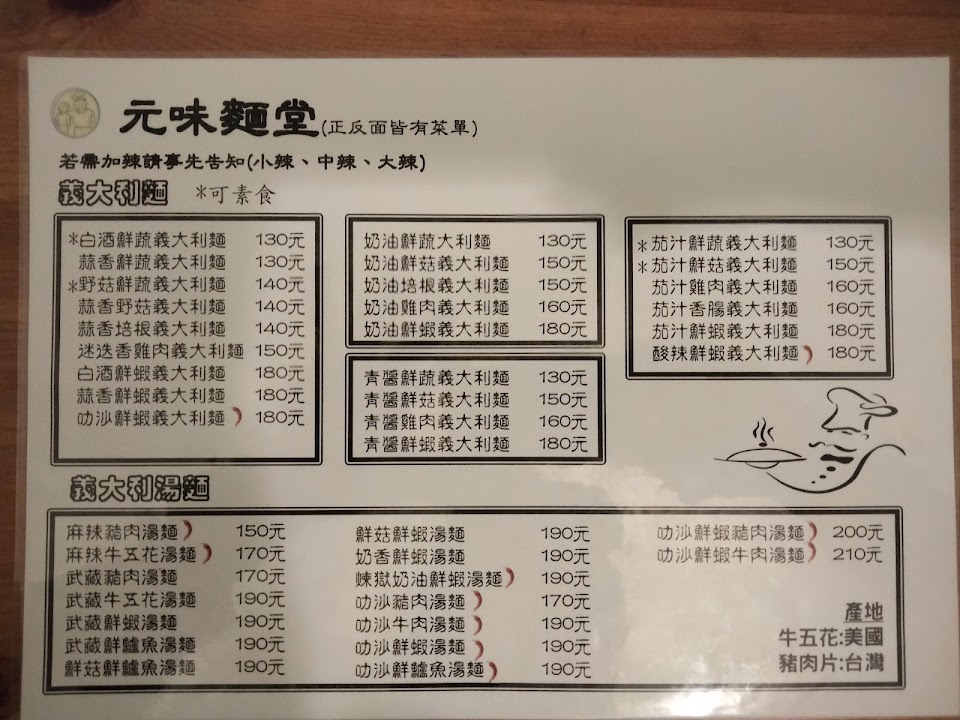 元味麵堂(正反面皆有菜單)
若需加辣請事先告知(小辣、中辣、大辣)
義大利麵 *可素食
*白酒鮮蔬義大利麵 130元
蒜香鮮蔬義大利麵 130元
*野菇鮮蔬義大利麵 140元
蒜香野菇義大利麵 140元
蒜香培根義大利麵 140元
迷迭香雞肉義大利麵 150元
白酒鮮蝦義大利麵 180元
蒜香鮮蝦義大利麵 180元
叻沙鮮蝦義大利麵 180元
奶油鮮蔬大利麵 130元
奶油鮮菇義大利麵 150元
奶油培根義大利麵 150元
奶油雞肉義大利麵 160元
奶油鮮蝦義大利麵 180元
青醬鮮蔬義大利麵 130元
青醬鮮菇義大利麵 150元
青醬雞肉義大利麵 160元
青醬鮮蝦義大利麵 180元
*茄汁鮮蔬義大利麵 130元
*茄汁鮮菇義大利麵 150元
茄汁雞肉義大利麵 160元
茄汁香腸義大利麵 160元
茄汁鮮蝦義大利麵 180元
酸辣鮮蝦義大利麵 180元
義大利湯麵
麻辣豬肉湯麵 150元
麻辣牛五花湯麵 170元
武藏豬肉湯麵 170元
武藏牛五花湯麵 190元
武藏鮮蝦湯麵 190元
武藏鮮鱸魚湯麵 190元
鮮菇鮮鱸魚湯麵 190元
鮮菇鮮蝦湯麵 190元
奶香鮮蝦湯麵 190元
煉獄奶油鮮蝦湯麵 190元
叻沙豬肉湯麵 170元
叻沙牛肉湯麵 190元
叻沙鮮蝦湯麵 190元
叻沙鮮鱸魚湯麵 190元
叻沙鮮蝦豬肉湯麵 200元
叻沙鮮蝦牛肉湯麵 210元
產地
牛五花:美國
豬肉片:台灣